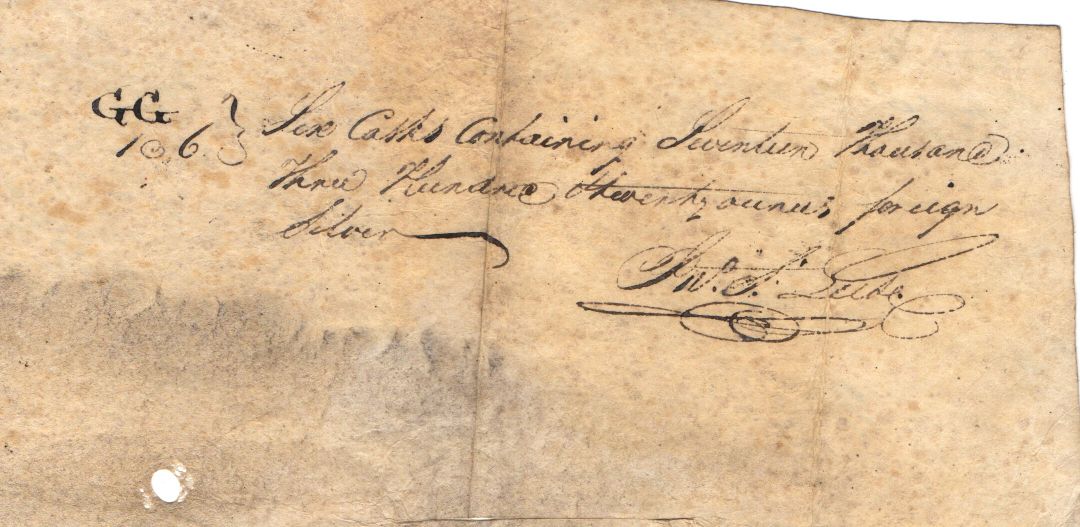 GG } Six Casks Containing Seventeen Thousand
1 @ 6. Three Hundred & twenty ounces foreign
Silver
Jno. S.